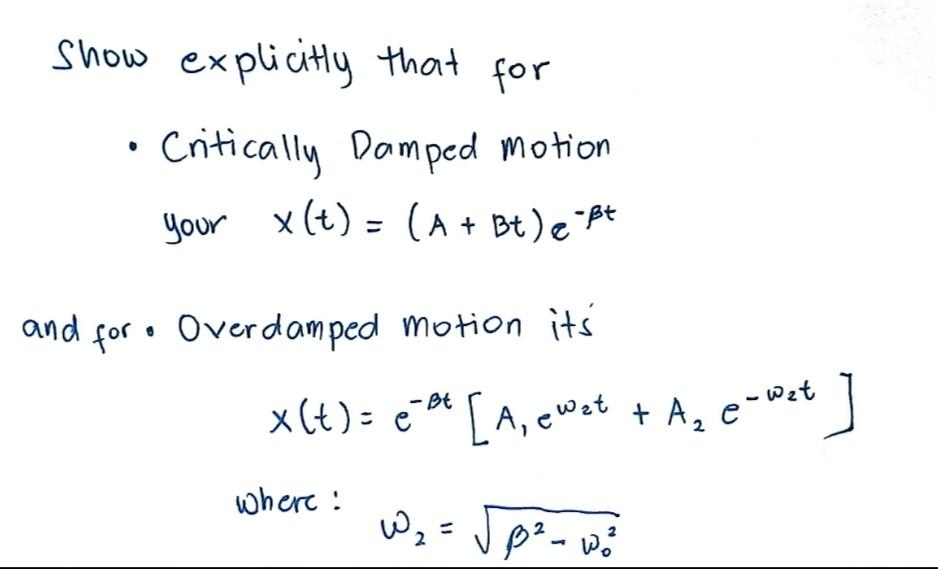 Show explicitly that for
• Critically Damped motion
your x(t) = (A + Bt)e^-βt
and for • Overdamped motion its
x(t) = e^-βt [A₁e^ω₂t + A₂ e^-ω₂t]
where:
ω₂ = √β² - ω₀²